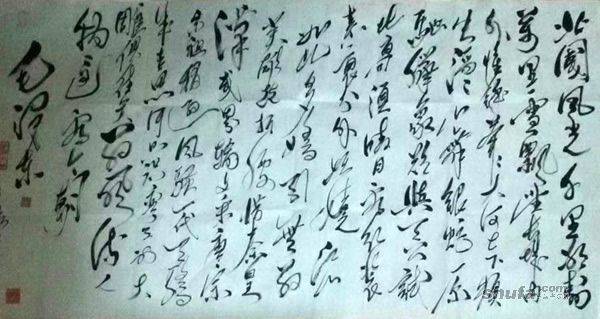 北國風光千里冰封
萬里雪飄望長城內
外惟餘莽莽大河上下頓
失滔滔山舞銀蛇原
馳蠟象欲與天公試
比高須晴日看紅裝
素裹分外妖嬈江山
如此多嬌引無數
英雄競折腰惜秦皇
漢武略輸文采唐宗
宋祖稍遜風騷一代天驕
成吉思汗只識彎弓射大
雕俱往矣數風流人
物還看今朝
毛澤東